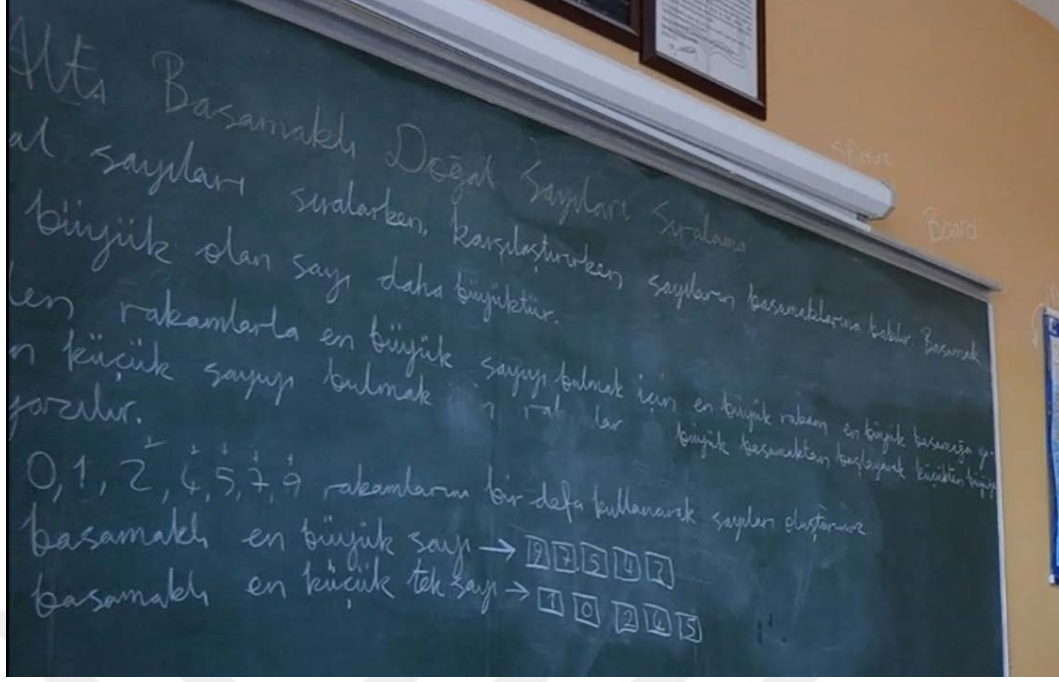 Altı Basamaklı Doğal Sayıları Sıralama
al sayıları sıralarken, karşılaştırırken sayıların basamaklarına bakılır. Basamak
büyük olan sayı daha büyüktür.
len rakamlarla en büyük sayıyı bulmak için en büyük rakam en büyük basamağa ya
n küçük sayıyı bulmak büyük basamaktan başlayarak küçükten büyüğe
yazılır.
0, 1, 2, 4, 5, 7, 9 rakamlarını bir defa kullanarak sayıları oluşturunuz
basamaklı en büyük sayı → 9 7 5 4 2
basamaklı en küçük tek sayı → 1 0 2 4 5
Board